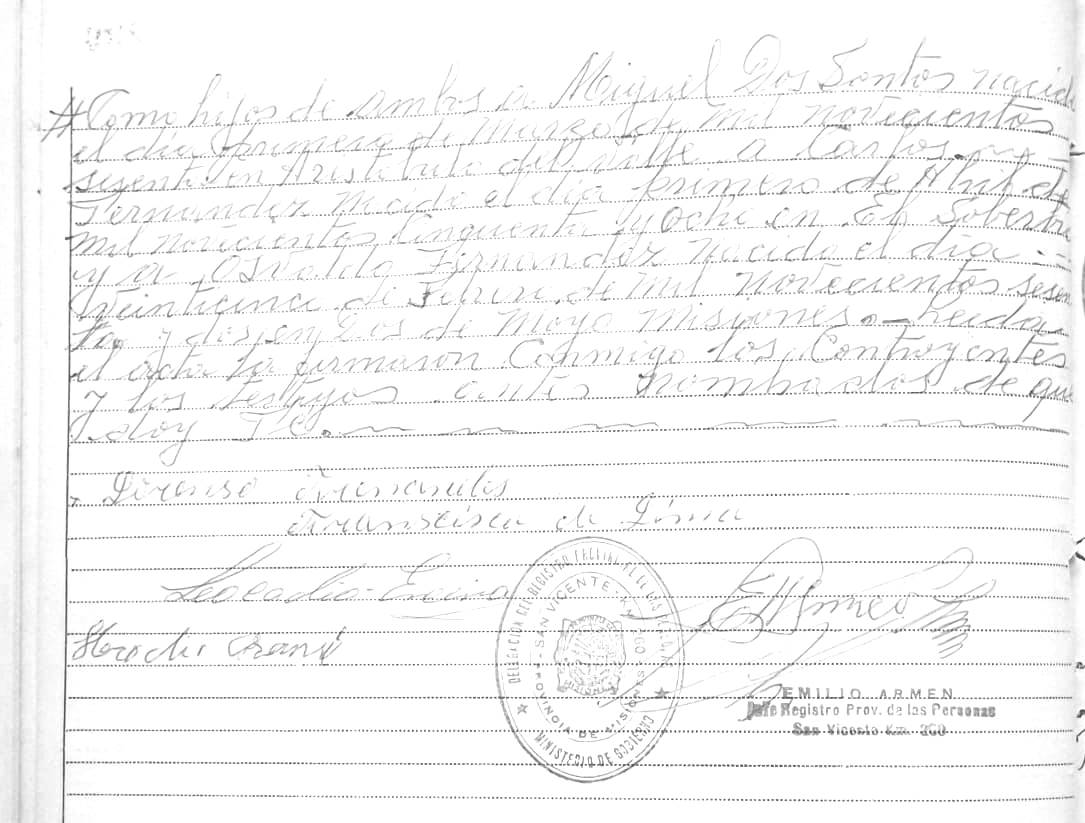 # Como hijos de ambos a Miguel Dos Santos nacido
el día primero de Marzo de mil novecientos
sesenta en Aristobulo del Valle a Carlos
Fernandez Nacido el día primero de Abril de
mil novecientos cinquenta y ocho en El Soberbio
y a Osvaldo Fernandez nacido el día
veinticinco de Febrero de mil novecientos sesen
ta y dos en Dos de Mayo Misiones. Leida
el acta la firmaron Conmigo los Contrayentes
y los testigos antes nombrados de que
doy Fé.
Fernandes
de Lima
Leocadio
DELEGACION DEL REGISTRO PROVINCIAL DE LAS PERSONAS
SAN VICENTE - Km. 260
PROVINCIA DE MISIONES
MINISTERIO DE GOBIERNO
EMILIO ARMEN
Jefe Registro Prov. de las Personas
San Vicente Km. 260